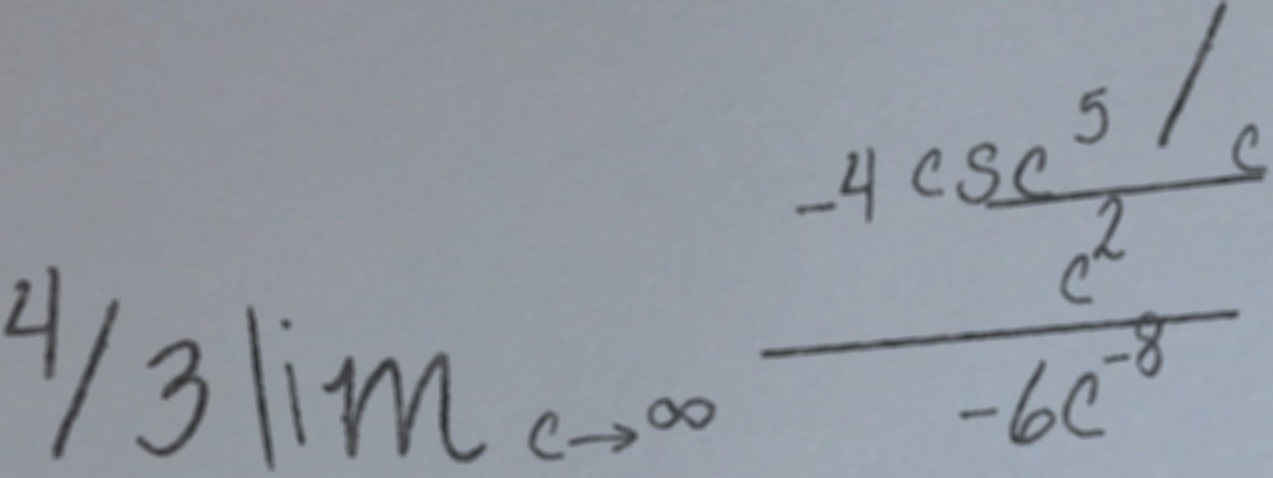 4/3 lim c→∞ \frac{\frac{-4 csc^5 / c}{c^2}}{-6c^{-8}}